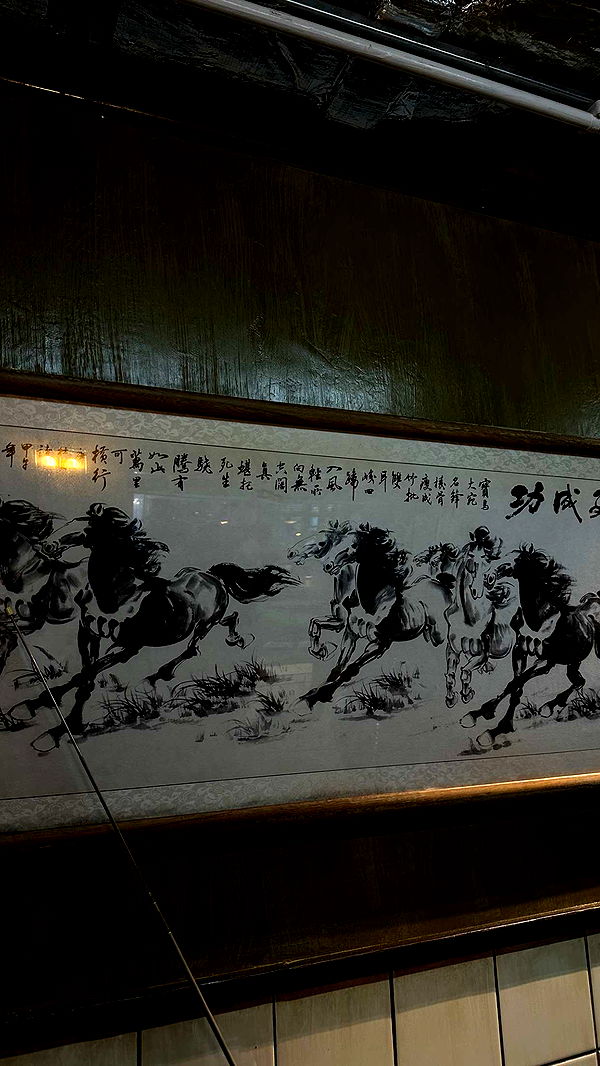 成功
寶馬
大宛
名鋒
棱骨
瘦成
竹批
雙
耳
峻四
蹄
入風
輕所
向無
空闊
真
堪托
死生
驍
騰有
如此
萬里
可
橫行
甲午
年